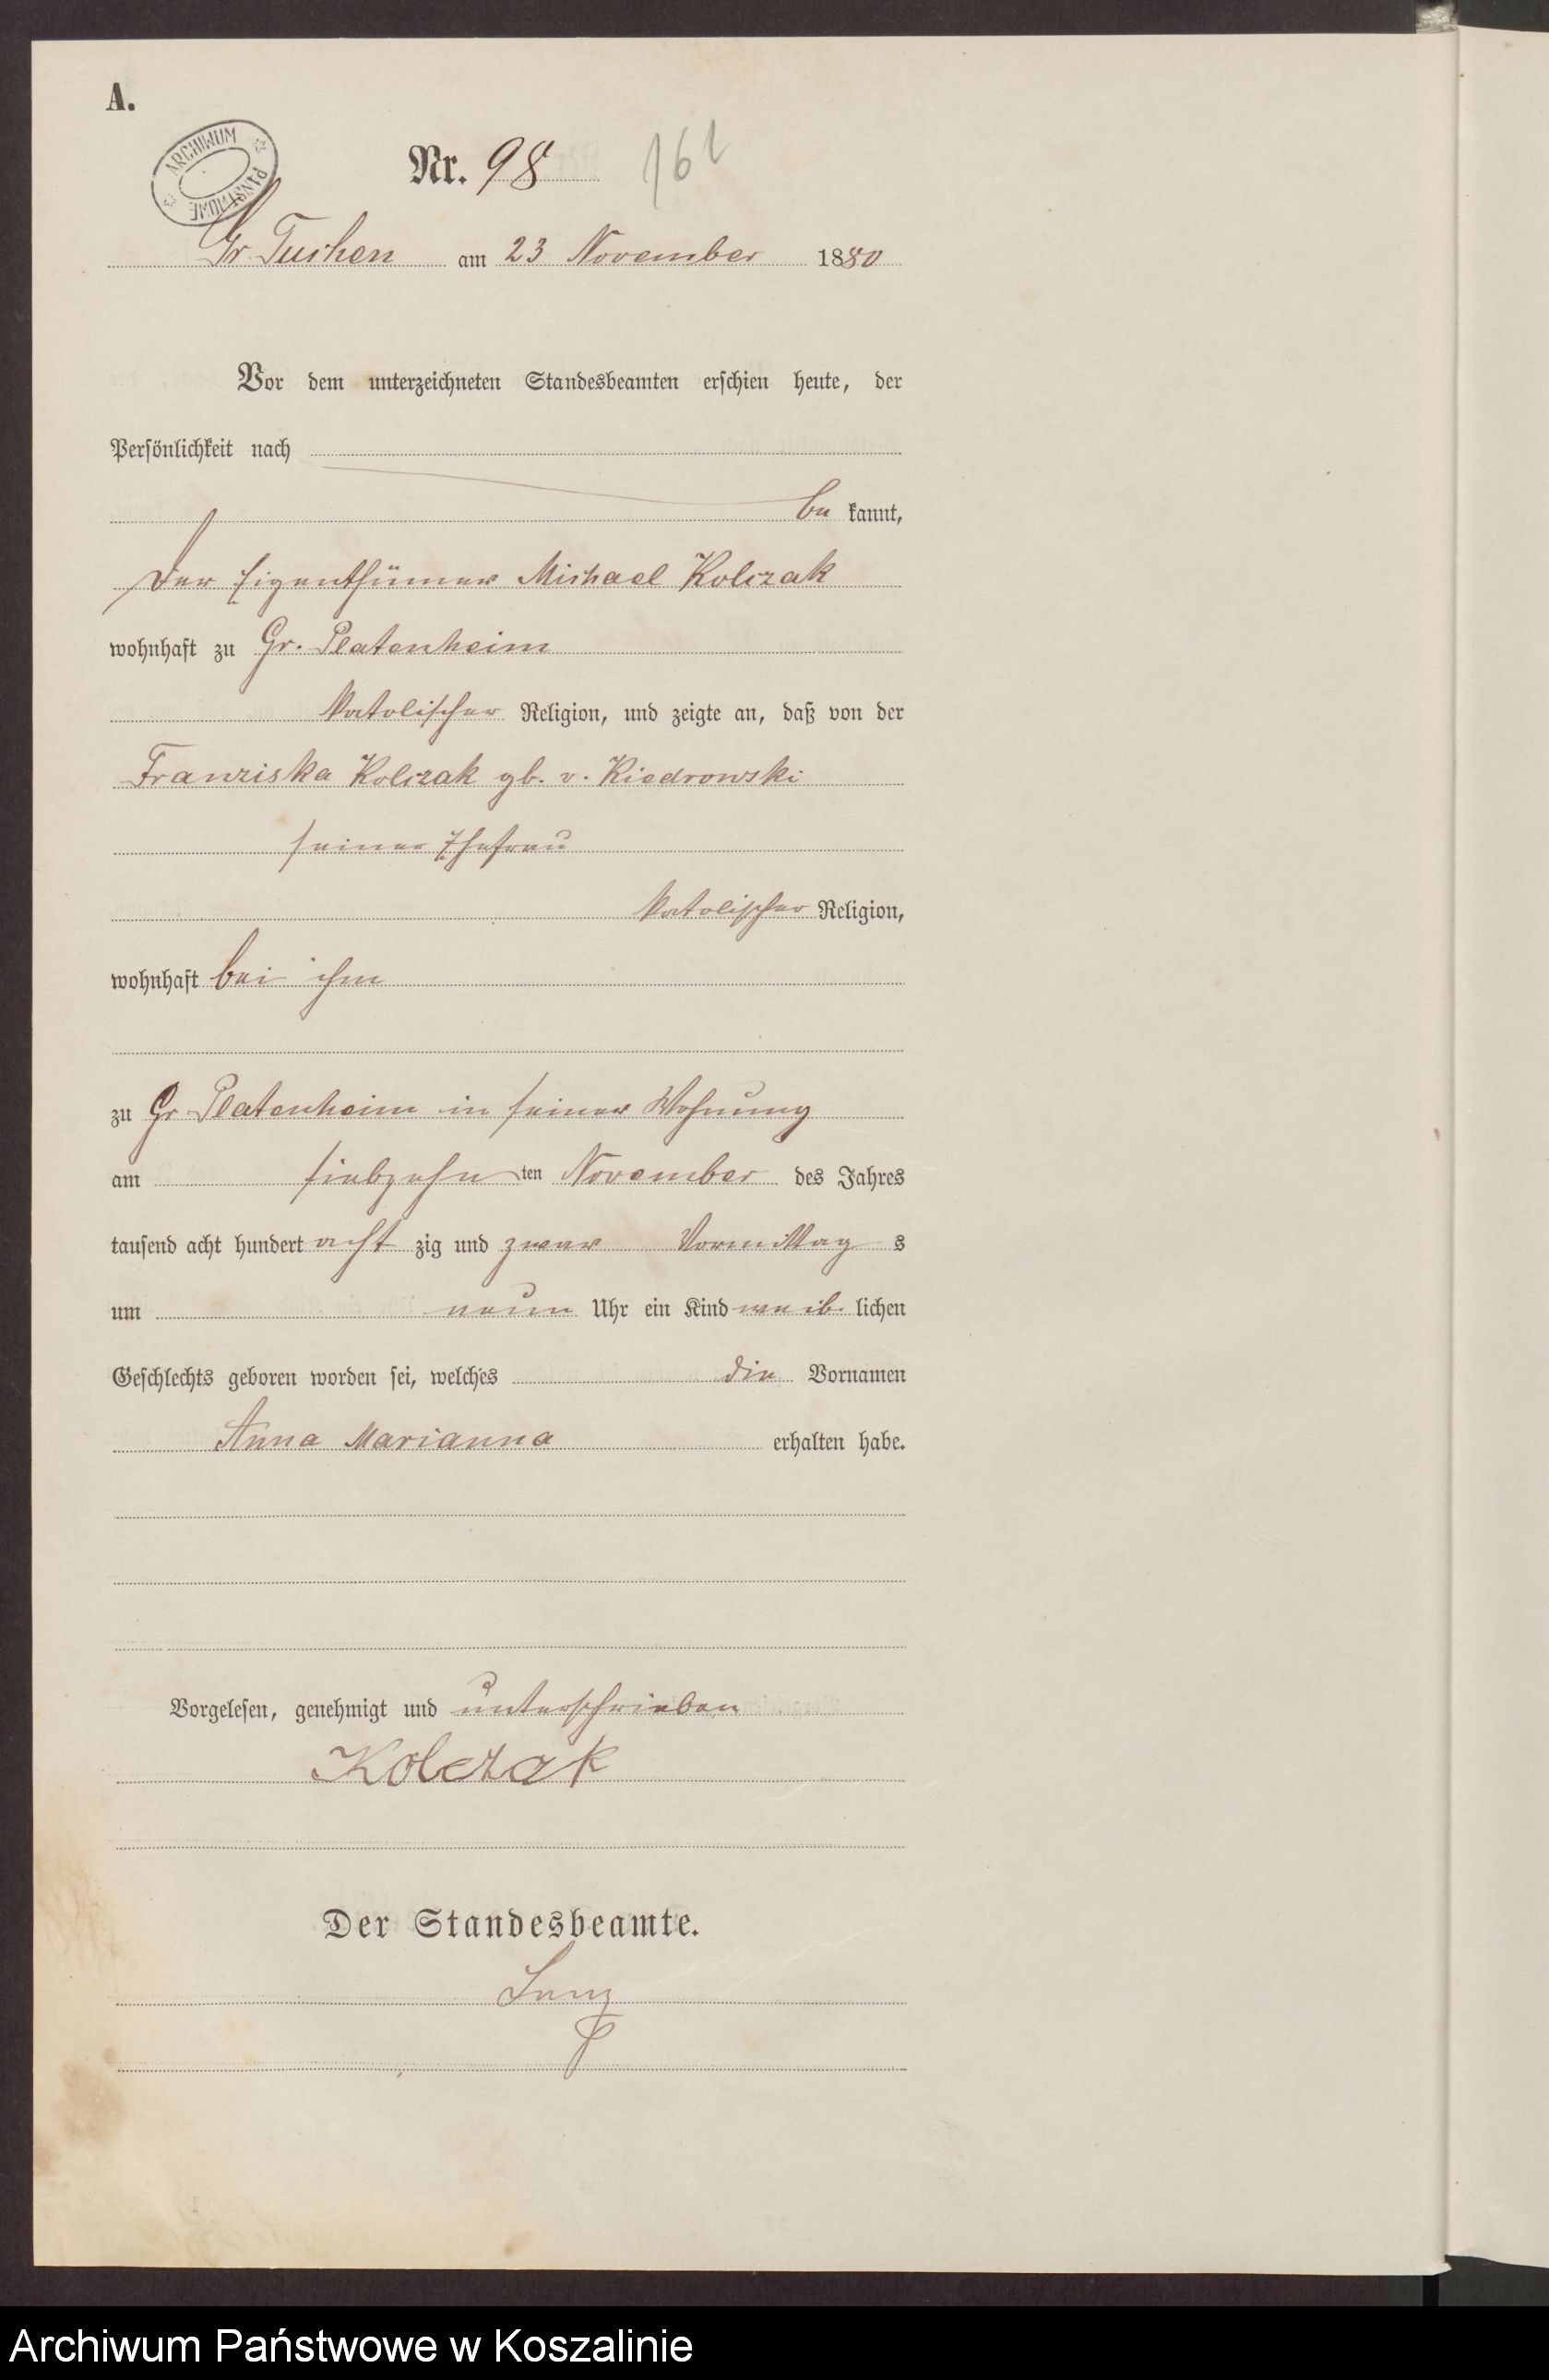 A.
ARCHIWUM PAŃSTWOWE
Nr. 98 161
Gr Tuchen am 23 November 1880
Vor dem unterzeichneten Standesbeamten erschien heute, der
Persönlichkeit nach
be kannt,
der Eigenthümer Michael Kolczak
wohnhaft zu Gr. Platenheim
katolischer Religion, und zeigte an, daß von der
Franziska Kolczak gb. v. Kiedrowski
seiner Ehefrau
katolischer Religion,
wohnhaft bei ihm
zu Gr Platenheim in seiner Wohnung
am siebzehn ten November des Jahres
tausend acht hundert acht zig und zwar Vormittag s
um neun Uhr ein Kind weib lichen
Geschlechts geboren worden sei, welches die Vornamen
Anna Marianna erhalten habe.
Vorgelesen, genehmigt und unterschrieben
Kolczak
Der Standesbeamte.
Archiwum Państwowe w Koszalinie